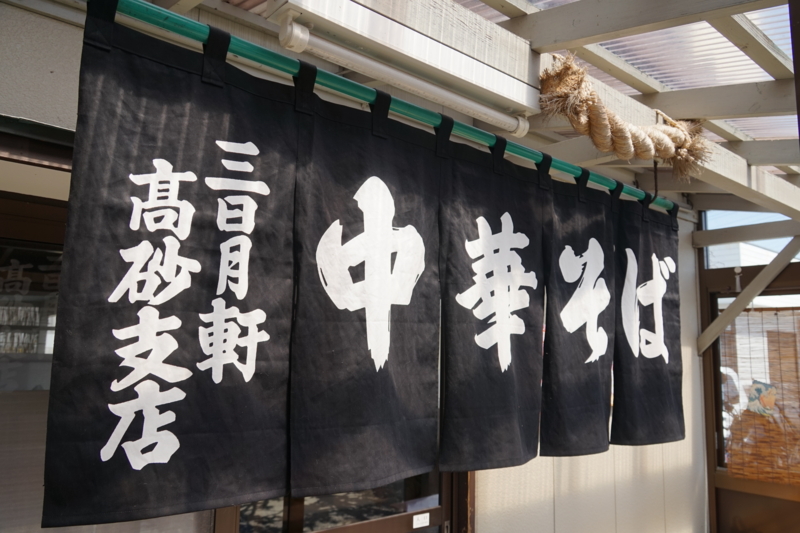 中華そば
三日月軒
髙砂支店